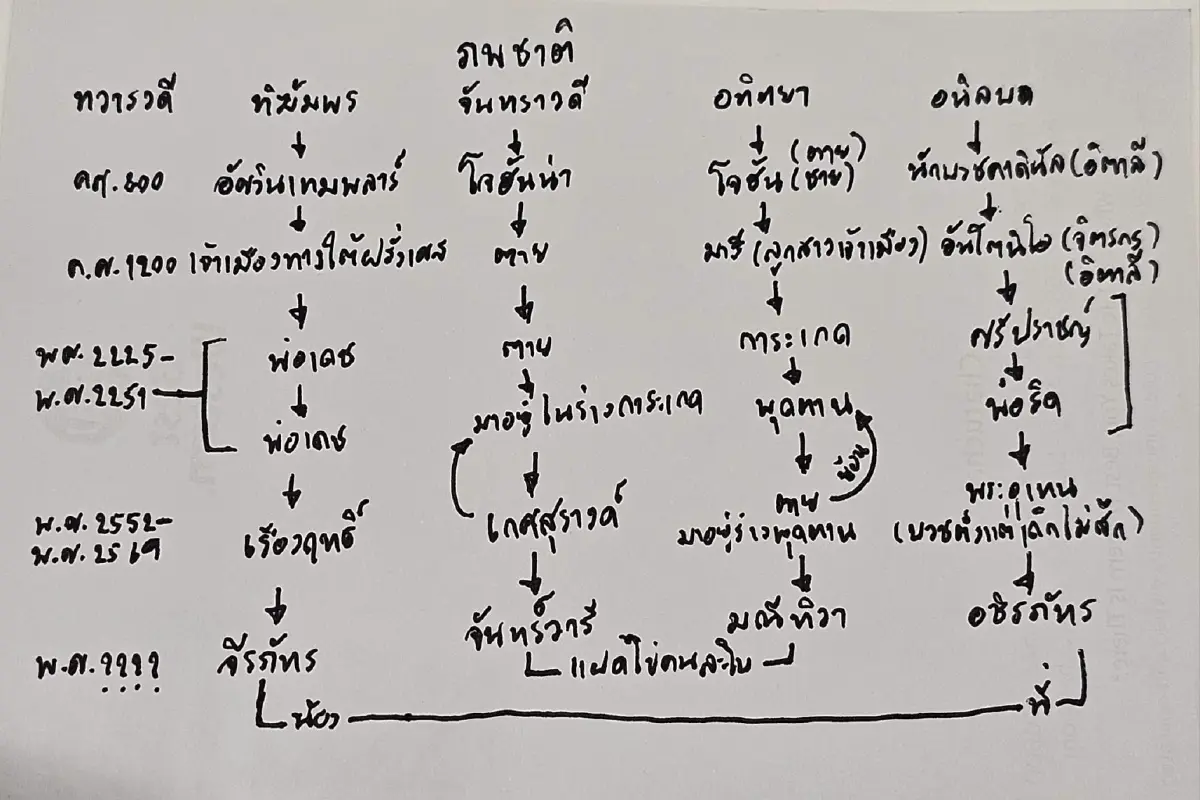 ภพชาติ
ทวารวดี ทิฆัมพร จันทราวดี อทิตยา อนิลบถ
คศ.800 อัศวินเทมพลาร์ โจฮันน่า โจฮัน (ตาย) (ชาย) นักบวชคาดินัล (อิตาลี)
ค.ศ.1200 เจ้าเมืองทางใต้ฝรั่งเศส ตาย มารี (ลูกสาวเจ้าเมือง) อันโตนิโอ (จิตรกร)
(อิตาลี)
พศ.2225- พ่อเดช ตาย การะเกด ศรีปราชญ์
พ.ศ.2251 มาอยู่ในร่างการะเกด พุดตาน พ่อริด
พ่อเดช ย้อน
พ.ศ.2552- เรืองฤทธิ์ เกศสุรางค์ ตาย พระอุเทน
พ.ศ.2569 มาอยู่ร่างพุดตาน (บวชตั้งแต่เด็กไม่สึก)
จันทร์วารี มณีทิวา อชิรภัทร
พ.ศ.???? จีรภัทร แฝดไข่คนละใบ
น้อง พี่